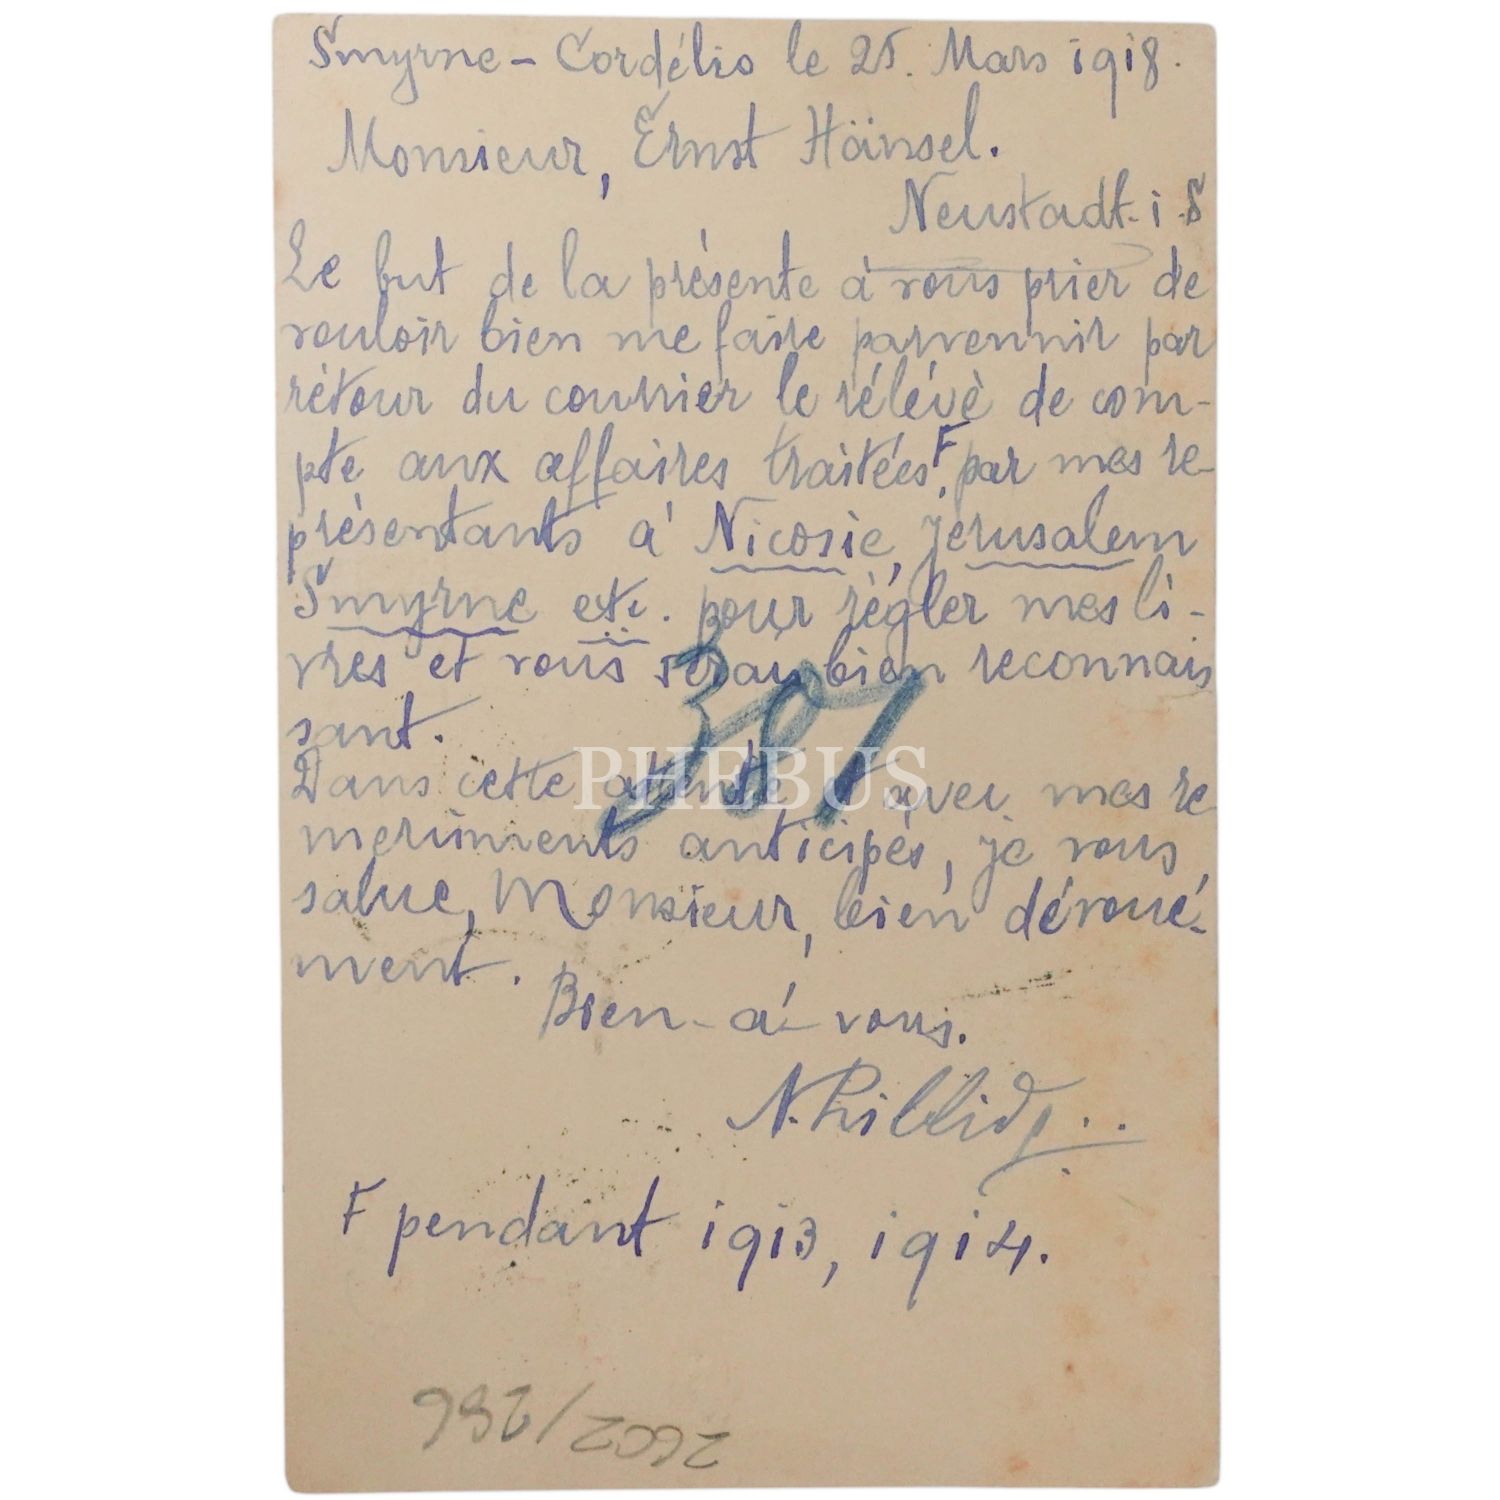 Smyrne - Cordélio le 25. Mars 1918.
Monsieur, Ernst Hänsel.
Neustadt. i. S
Le but de la présente à vous prier de
vouloir bien me faire parvennir par
rétour du courrier le rélévè de com-
pte aux affaires traitées F, par mes re-
présentants à Nicosie, Jérusalem
Smyrne etc. pour régler mes li-
vres et vous serais bien reconnais
sant.
307
PHEBUS
Dans cette attente et avec mes re
merciments anticipés, je vous
salue, Monsieur, bien dévoué-
ment.
Bien - à - vous.
F pendant 1913, 1914.
2602/286